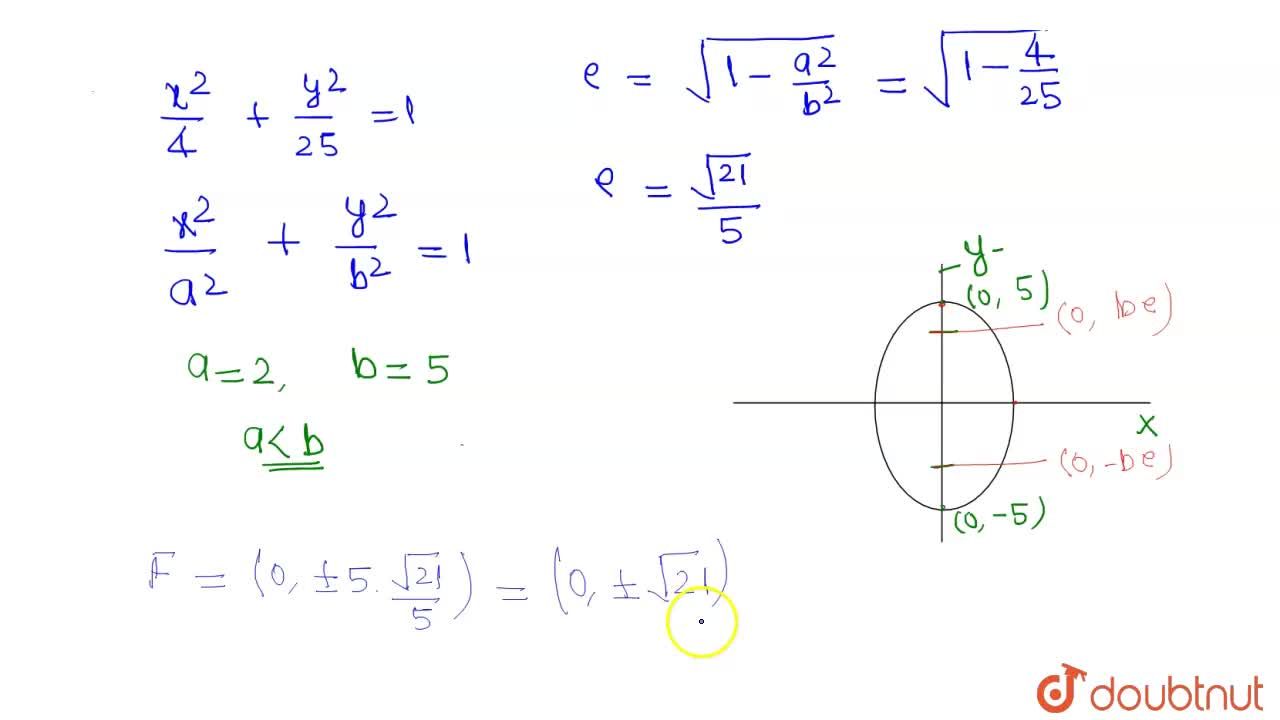 x²/4 + y²/25 = 1
x²/a² + y²/b² = 1
a = 2, b = 5
a < b
e = √(1 - a2/b2) = √(1 - 4/25)
e = √21/5
y
(0, 5)
(0, be)
X
(0, -be)
(0, -5)
F = (0, ± 5. √21/5) = (0, ± √21)
doubtnut